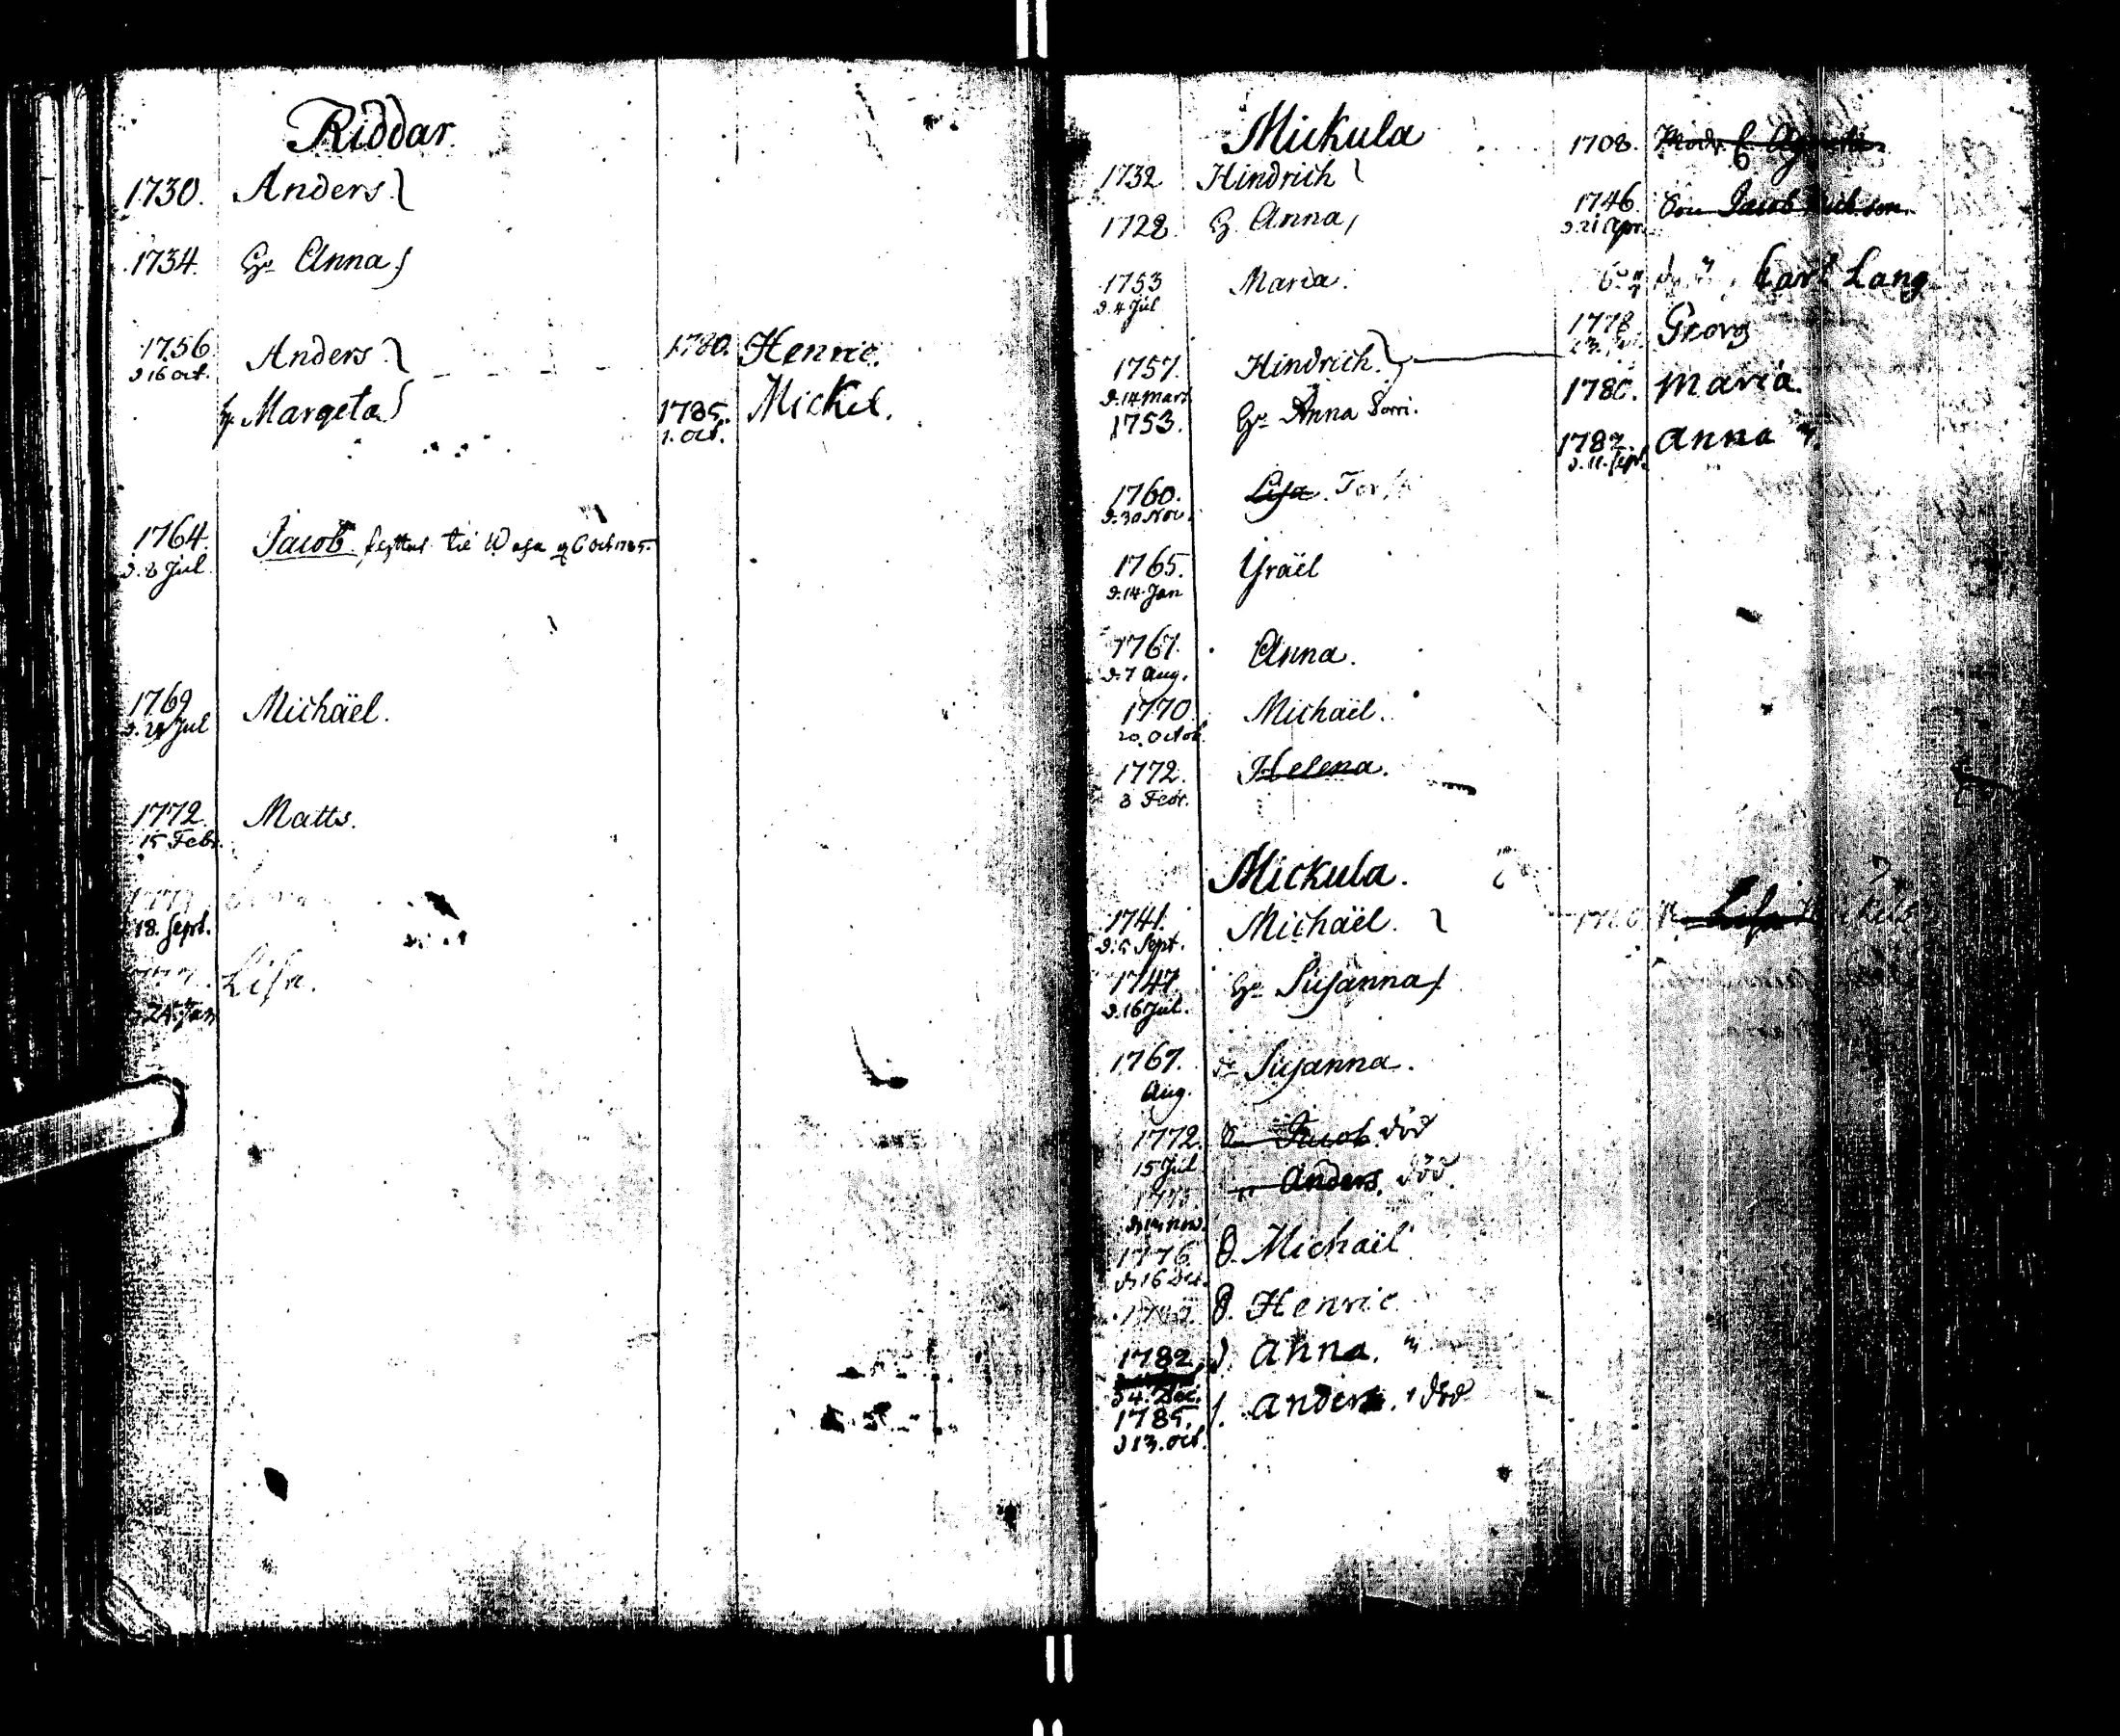 Riddar.
1730. Anders
1734. H. Anna
1756. Anders
d 16 oct.
H. Margeta
1780. Henric.
1785. Mickel.
1. Oct.
1764. Jacob flyttat til Wasa d 6 Oct 1785.
d. 8 Jul
1769 Michäel.
Jul
1772. Matts.
15 Febr.
18. Sept.
Lisa.
24. Jan
Mickula
1732 Hindrich
1728. H. Anna
1753 Maria.
d. 4 Jul
1757. Hindrich.
d. 14 Mart
1753. H. Anna Sorri.
1760. Lisa.
d. 30 Nov.
1765. Ysräel
d. 14 Jan
1767. Anna.
d. 7 Aug.
1770. Michäel.
20. Octob.
1772. Helena.
8 Febr.
1708.
1746. Jacob
d. 21 Apr.
Carl Lang
1778 Georg
1780. Maria.
1782. Anna
d. 11. Sept.
Mickula.
1741. Michäel.
d. 5 Sept.
1747. H. Susanna
d. 16 Jul.
1767. Susanna.
Aug.
1772. Jacob död
15 Jul
Anders. död.
1776 Michäel
d 16 Dec.
Henric
1782 d. Anna.
d 4. Dec.
1785. s. Anders. död
d 13. Oct.